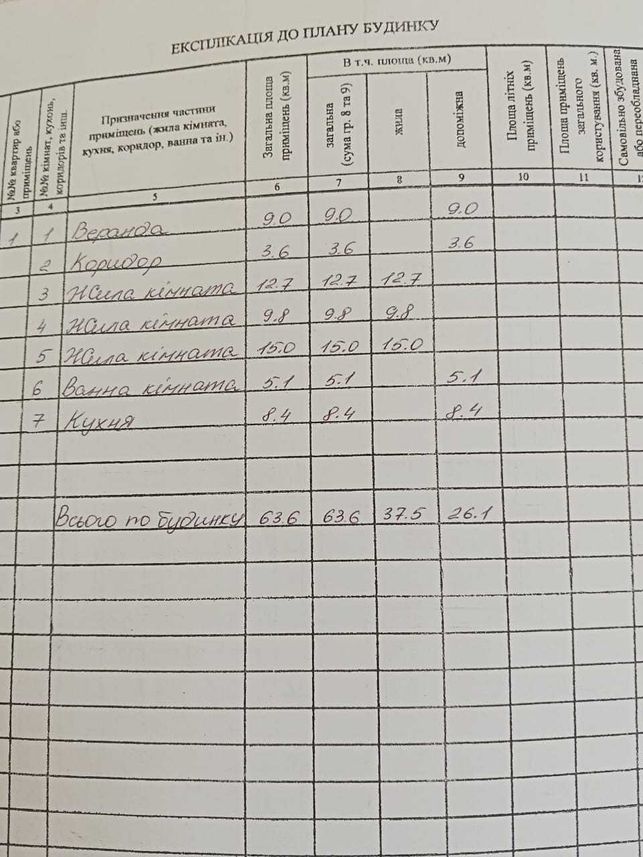 ЕКСПЛІКАЦІЯ ДО ПЛАНУ БУДИНКУ
№№ квартир або приміщень
№№ кімнат, кухонь, коридорів та інш.
Призначення частини приміщень (жила кімната, кухня, коридор, ванна та ін.)
Загальна площа приміщень (кв.м)
В т.ч. площа (кв.м)
загальна (сума гр. 8 та 9)
жила
допоміжна
Площа літніх приміщень (кв.м)
Площа приміщень загального користування (кв. м.)
Самовільно збудована або переобладнана
3 4 5 6 7 8 9 10 11
1 1 Веранда 9.0 9.0 9.0
2 Коридор 3.6 3.6 3.6
3 Жила кімната 12.7 12.7 12.7
4 Жила кімната 9.8 9.8 9.8
5 Жила кімната 15.0 15.0 15.0
6 Ванна кімната 5.1 5.1 5.1
7 Кухня 8.4 8.4 8.4
Всього по будинку 63.6 63.6 37.5 26.1